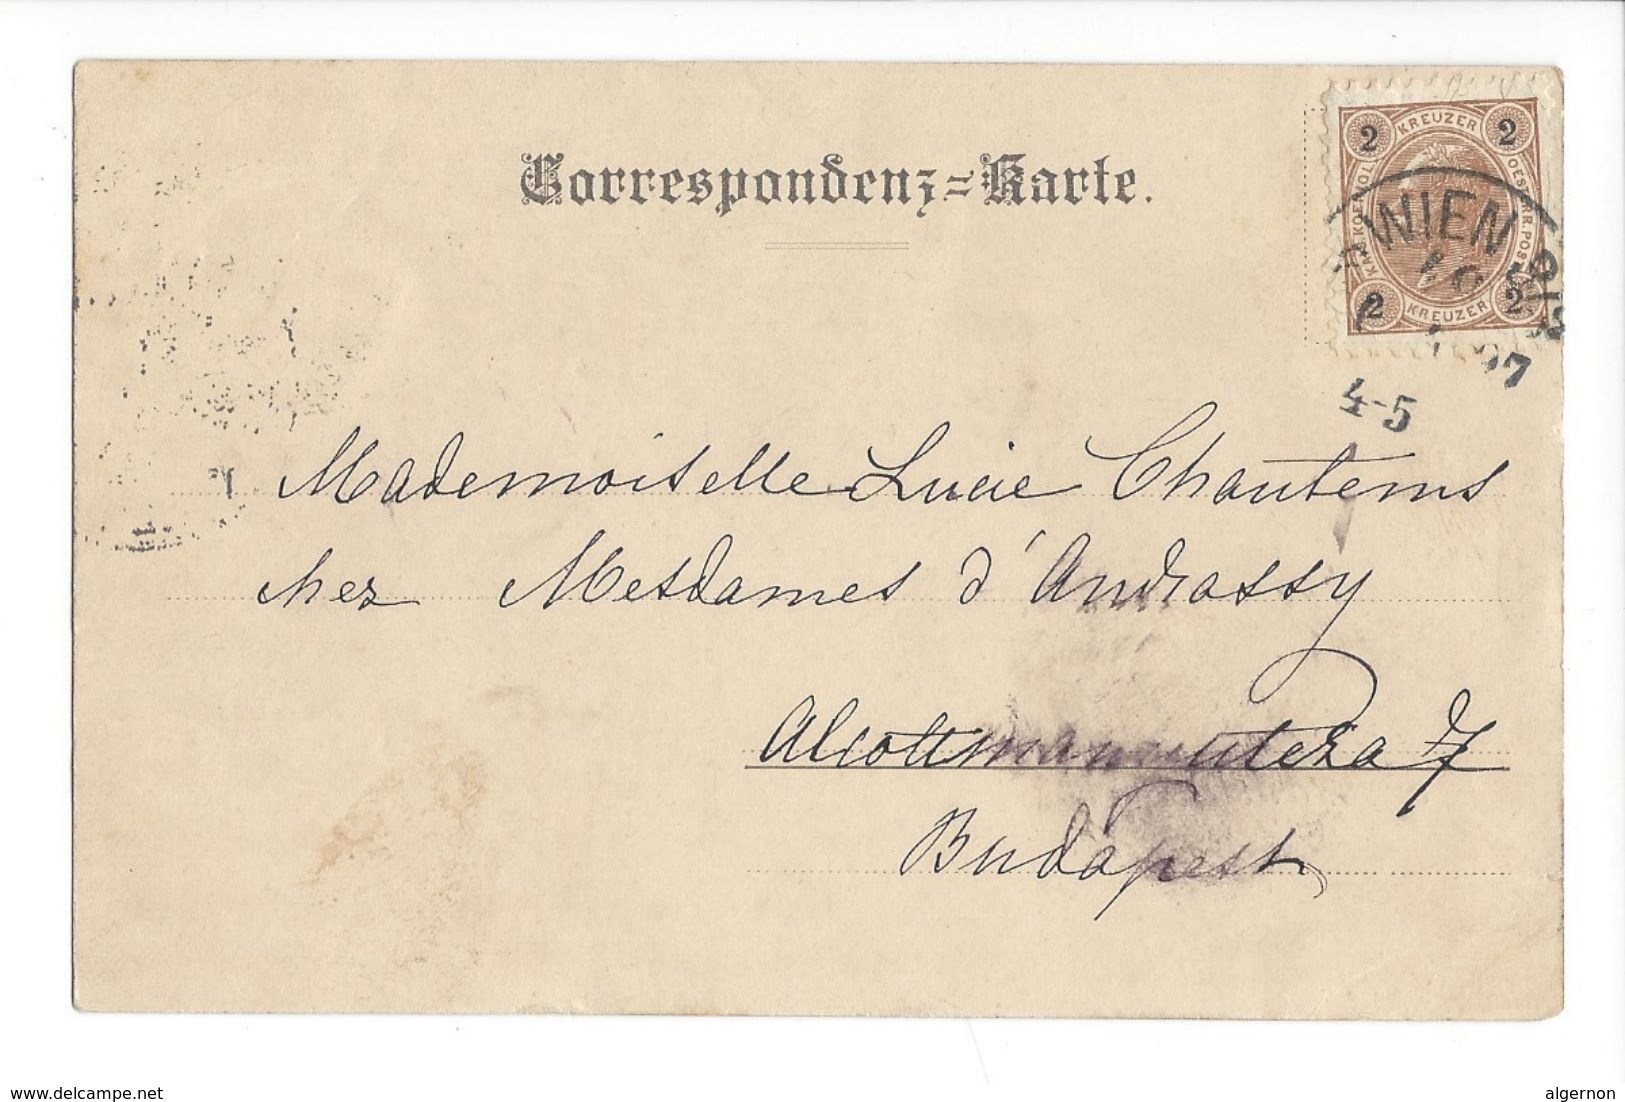 Correspondenz=Karte.
2 KREUZER 2
KAIS.KOEN OESTERR. POST
2 KREUZER 2
WIEN
4-5
Mademoiselle Lucie Chautems
chez Mesdames d'Andrassy
7
Budapest
delcampe.net
algernon